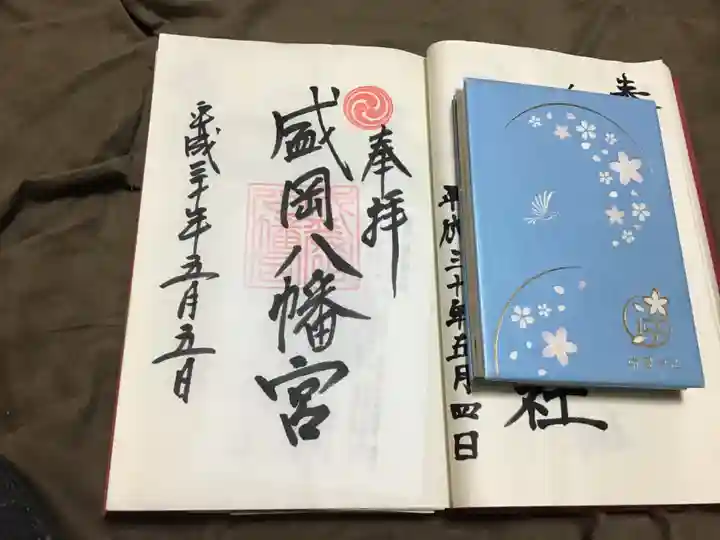 奉拝
盛岡八幡宮
平成三十年五月五日
奉
社
平成三十年五月四日